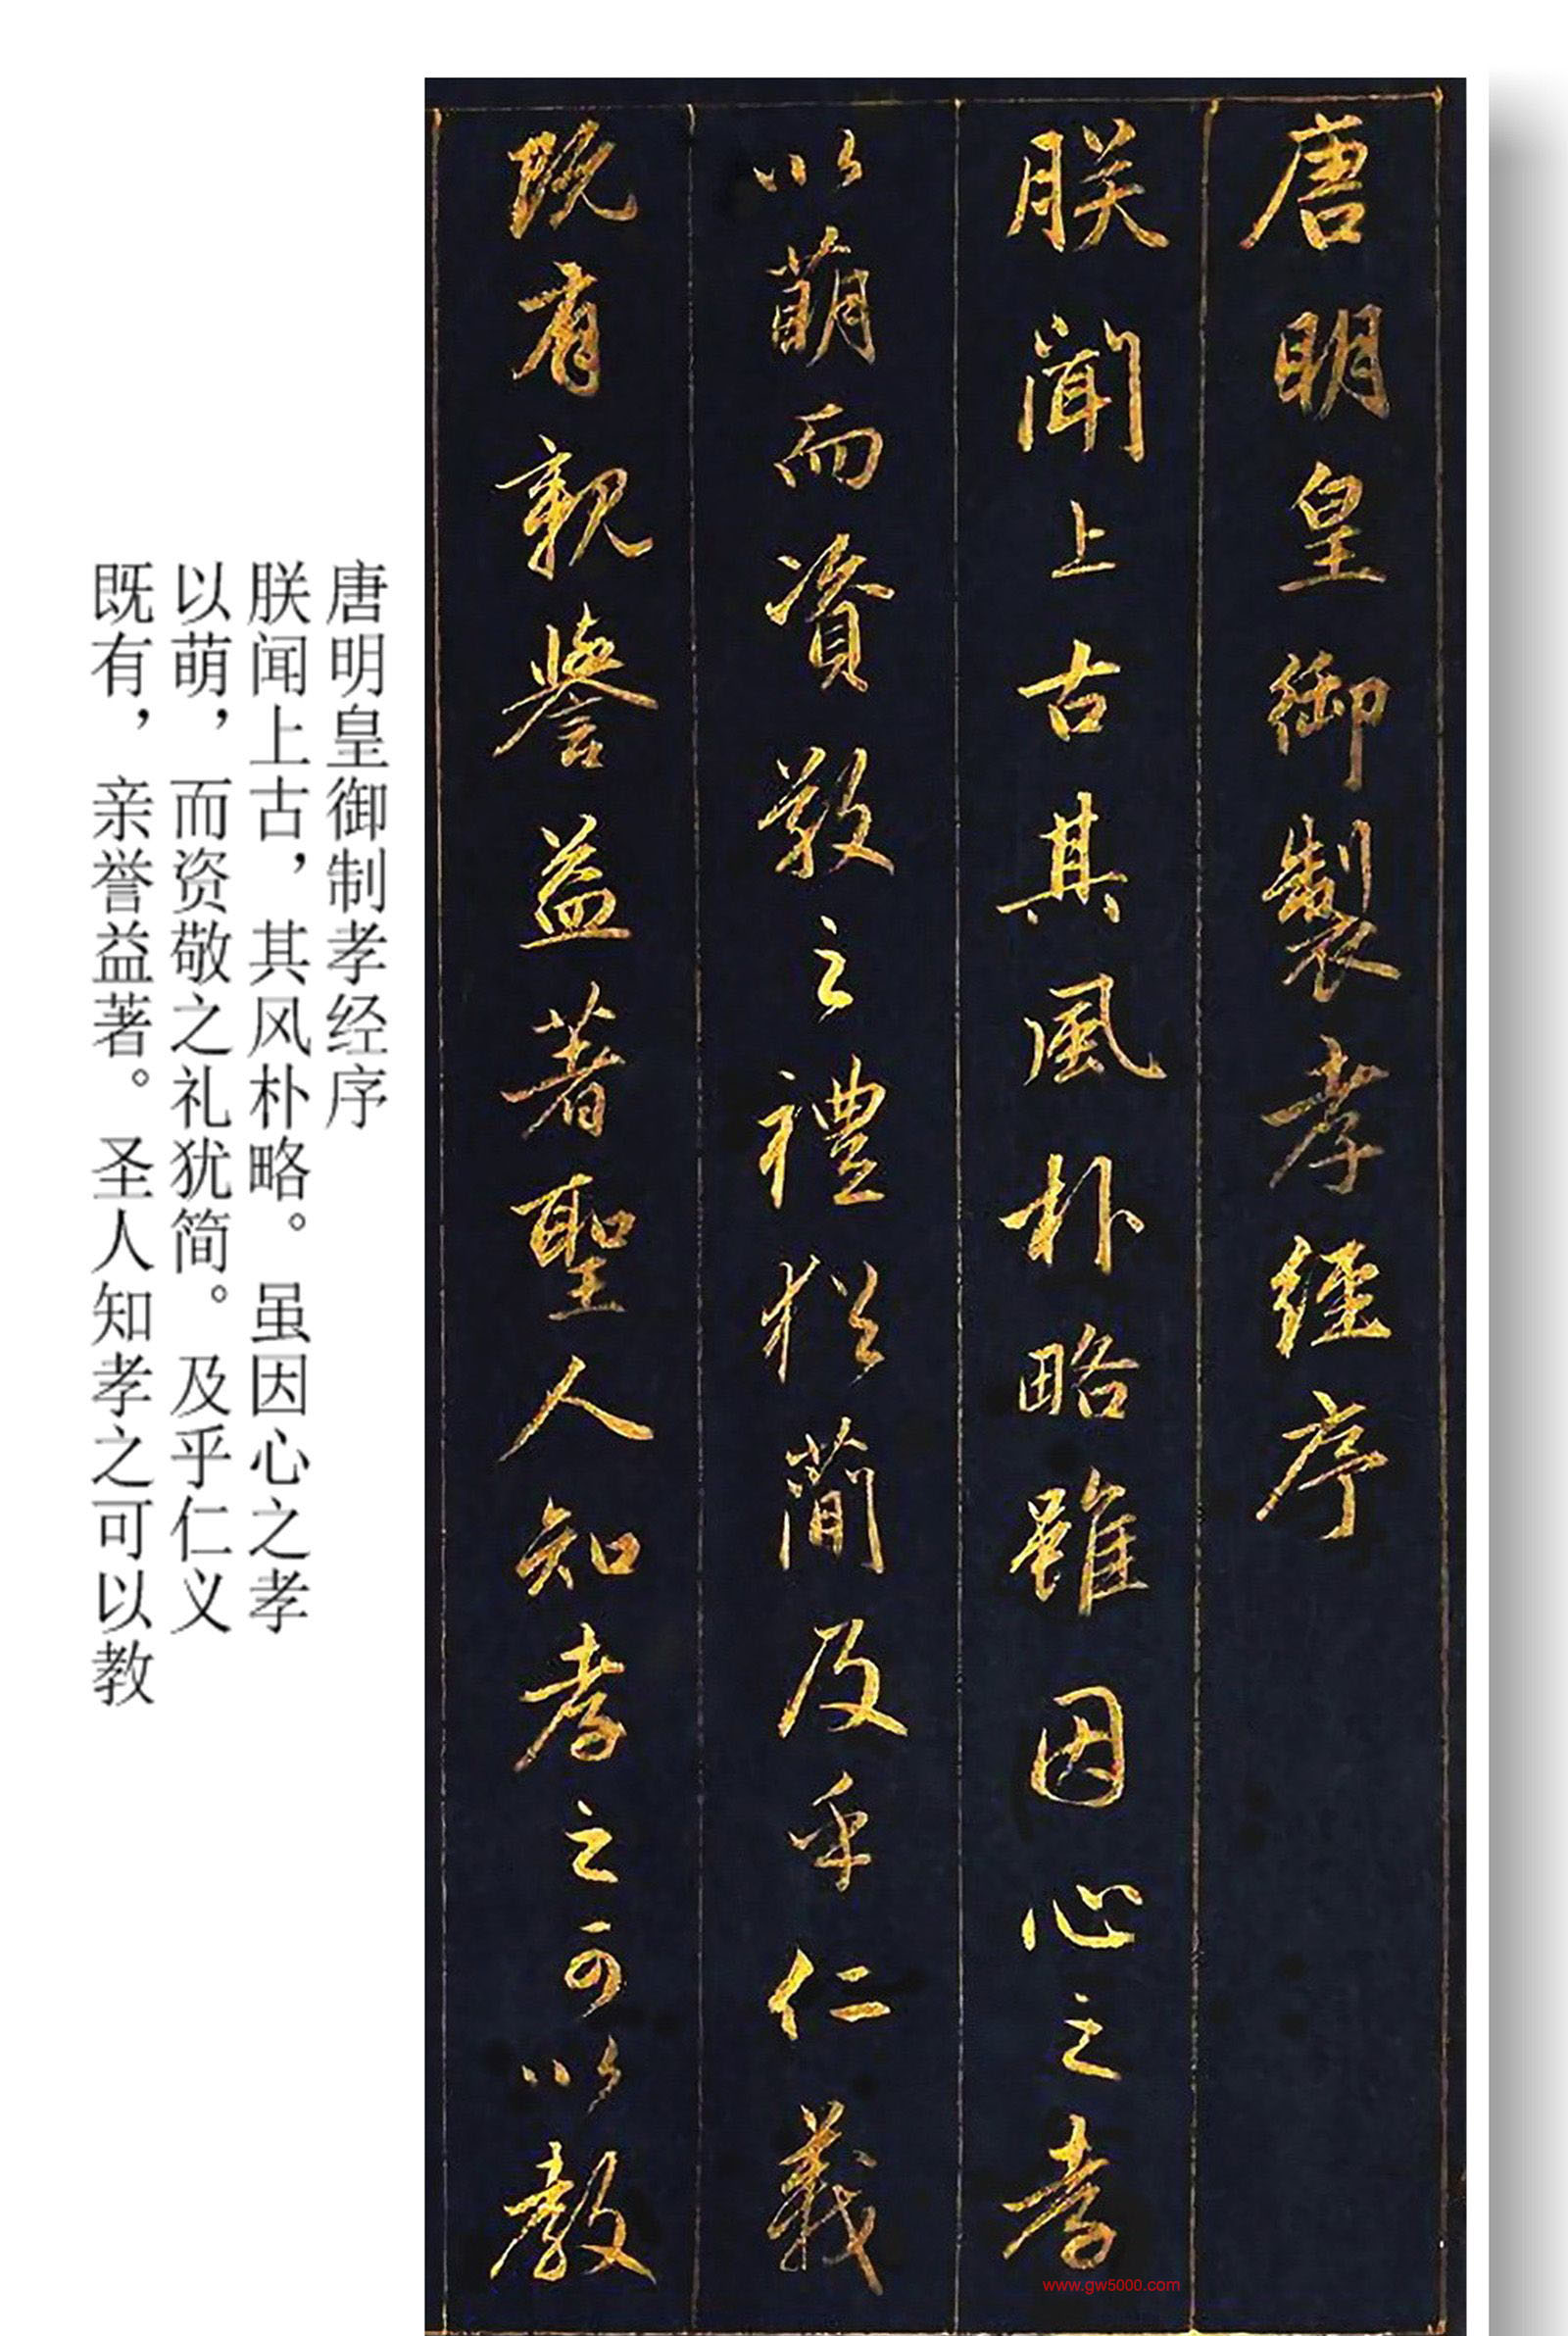 唐明皇御製孝經序
朕聞上古其風朴略雖因心之孝
以萌而資敬之禮猶簡及乎仁義
既有親譽益著聖人知孝之可以教
唐明皇御制孝经序
朕闻上古，其风朴略。虽因心之孝
以萌，而资敬之礼犹简。及乎仁义
既有，亲誉益著。圣人知孝之可以教
www.gw5000.com